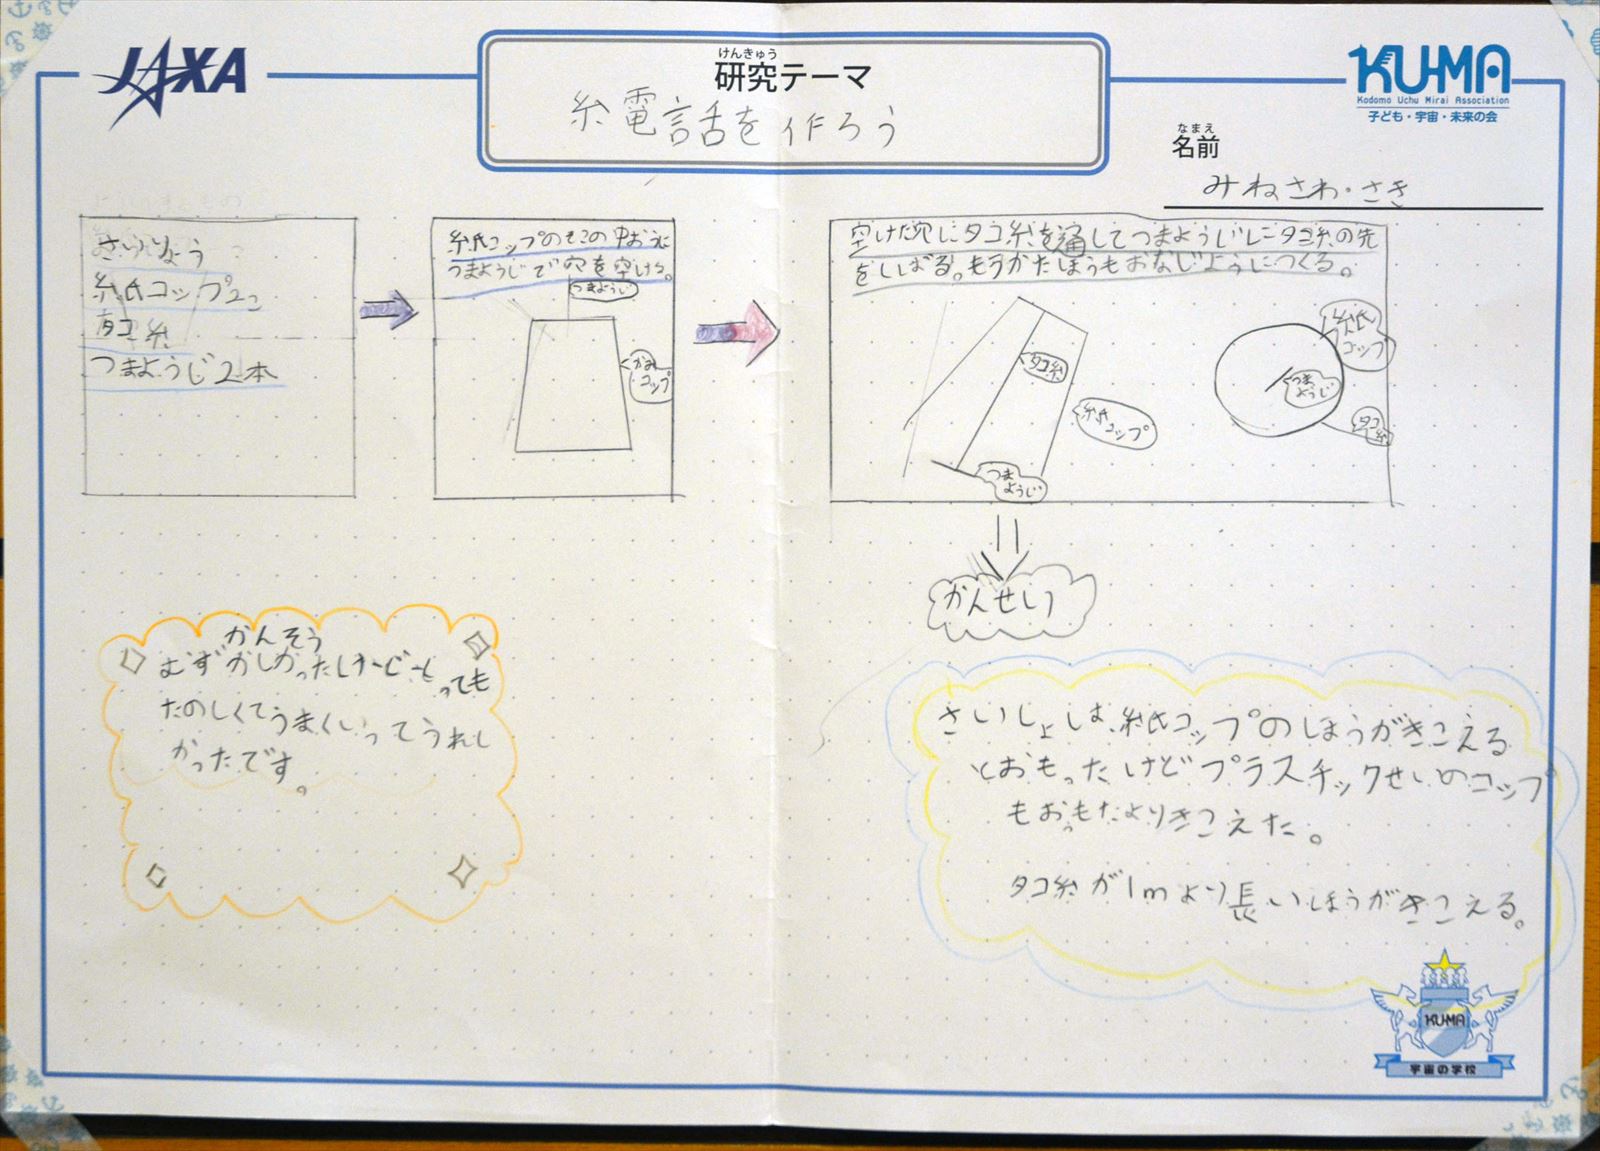 JAXA
けんきゅう
研究テーマ
糸電話を作ろう
KU-MA
Kodomo Uchu Mirai Association
子ども・宇宙・未来の会
なまえ
名前
みねさわ・さき
さいりょう
紙コップ2こ
タコ糸
つまようじ2本
紙コップのそこの中おうに
つまようじで穴を空ける。
つまようじ
かみ
コップ
空けた穴にタコ糸を通してつまようじにタコ糸の先
をしばる。もうかたほうもおなじようにつくる。
タコ糸
紙
コップ
つま
ようじ
紙
コップ
つま
ようじ
タコ
糸
かんせい
かんそう
むずかしかったけどとっても
たのしくてうまくいってうれし
かったです。
さいしょは、紙コップのほうがきこえる
とおもったけどプラスチックせいのコップ
もおっもたよりきこえた。
タコ糸が1mより長いほうがきこえる。
KU-MA
宇宙の学校